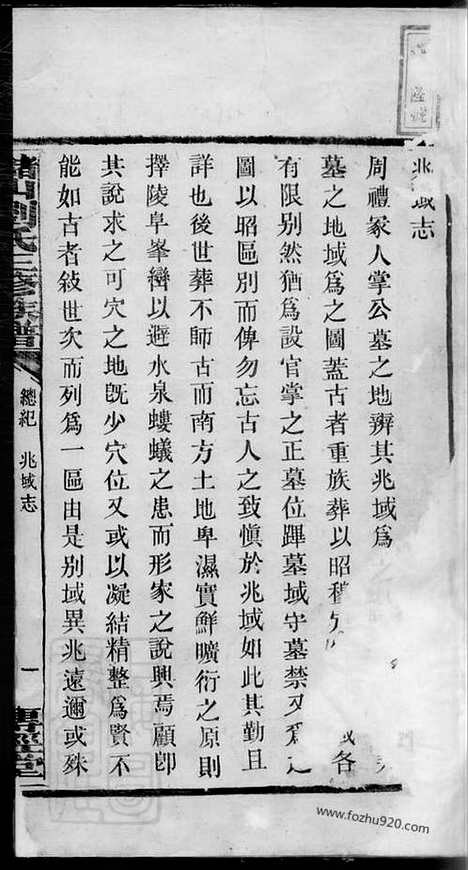 兆域志
周禮冢人掌公墓之地辨其兆域爲
墓之地域爲之圖蓋古者重族葬以昭穆 域各
有限別然猶爲設官掌之正墓位蹕墓域守墓禁又爲之
圖以昭區別而俾勿忘古人之致慎於兆域如此其勤且
詳也後世葬不師古而南方土地卑濕實鮮曠衍之原則
擇陵阜峯巒以避水泉螻蟻之患而形家之說興焉顧卽
其說求之可穴之地旣少穴位又或以凝結精整爲賢不
能如古者敍世次而列爲一區由是別域異兆遠邇或殊
山劉氏三修族譜
總紀 兆域志
一
www.fozhu920.com